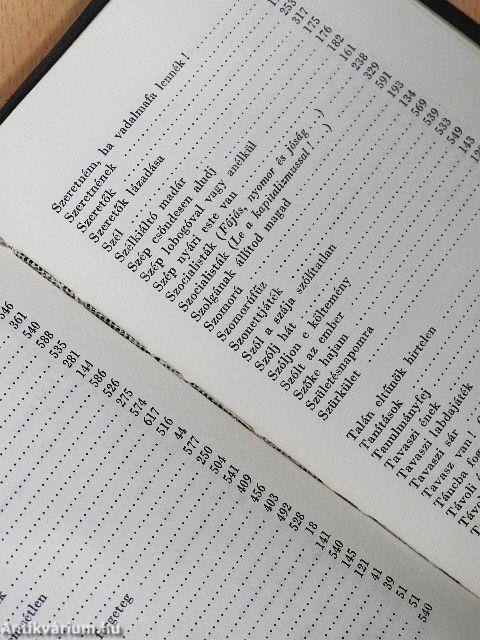 346
361
540
588
535
281
144
586
526
275
574
617
516
44
577
250
504
541
409
456
403
492
528
18
141
540
145
121
41
39
51
51
540
253
317
175
176
182
161
238
329
591
193
134
569
539
533
549
143
Szeretném, ha vadalmafa lennék!
Szeretnének
Szeretők
Szeretők lázadása
Szél
Szélkiáltó madár
Szép csöndesen aludj
Szép lobogóval vagy anélkül
Szép nyári este van
Szocialisták (Fájás, nyomor és jóság . .)
Szocialisták (Le a kapitalizmussal! . .)
Szolgának állítod magad
Szomorú
Szomorúfűz
Szonettjáték
Szól a szája szólítatlan
Szólj hát
Szóljon e költemény
Szólt az ember
Szőke hajnm
Születésnapomra
Szürkület
Talán eltűnök hirtelen
Tanítások
Tanulmányfej
Tavaszi ének
Tavaszi labdajáték
Tavaszi sár
Tavasz van!
Táncba fog
Távoli
Antikvárium.hu